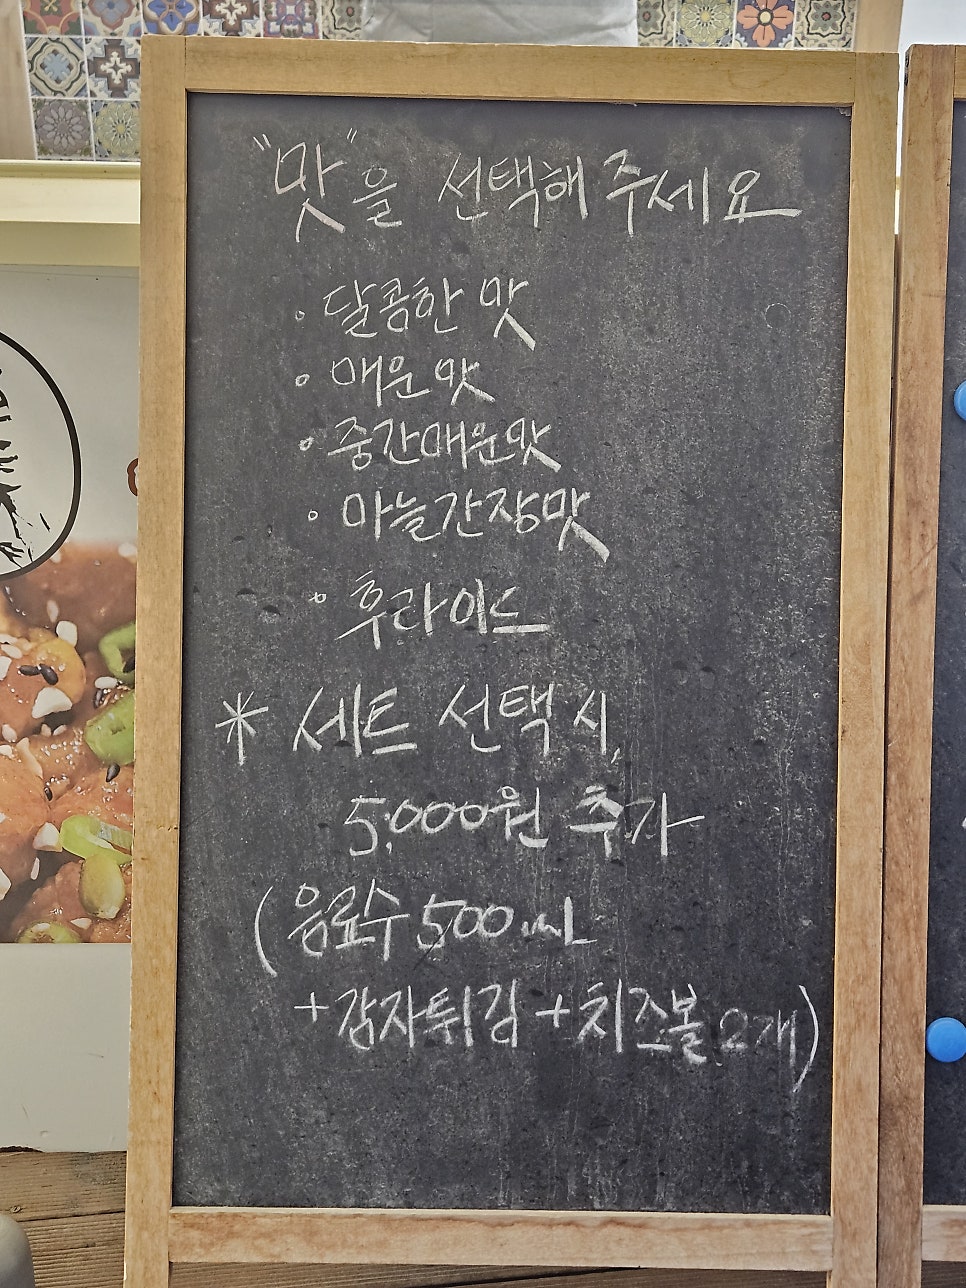 "맛"을 선택해 주세요
• 달콤한 맛
• 매운맛
• 중간매운맛
• 마늘간장맛
• 후라이드
* 세트 선택 시,
5,000원 추가
(음료수 500mL
+감자튀김+치즈볼 2개)